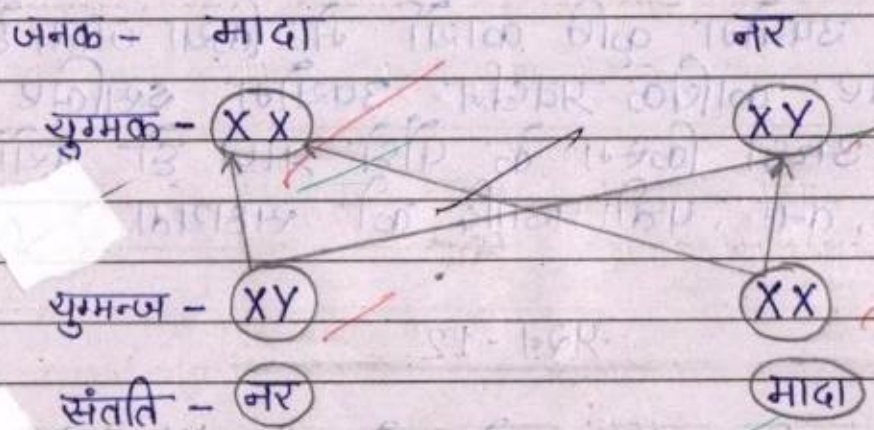 जनक - मादा नर
युग्मक - XX XY
युग्मन्ज - XY XX
संतति - नर मादा